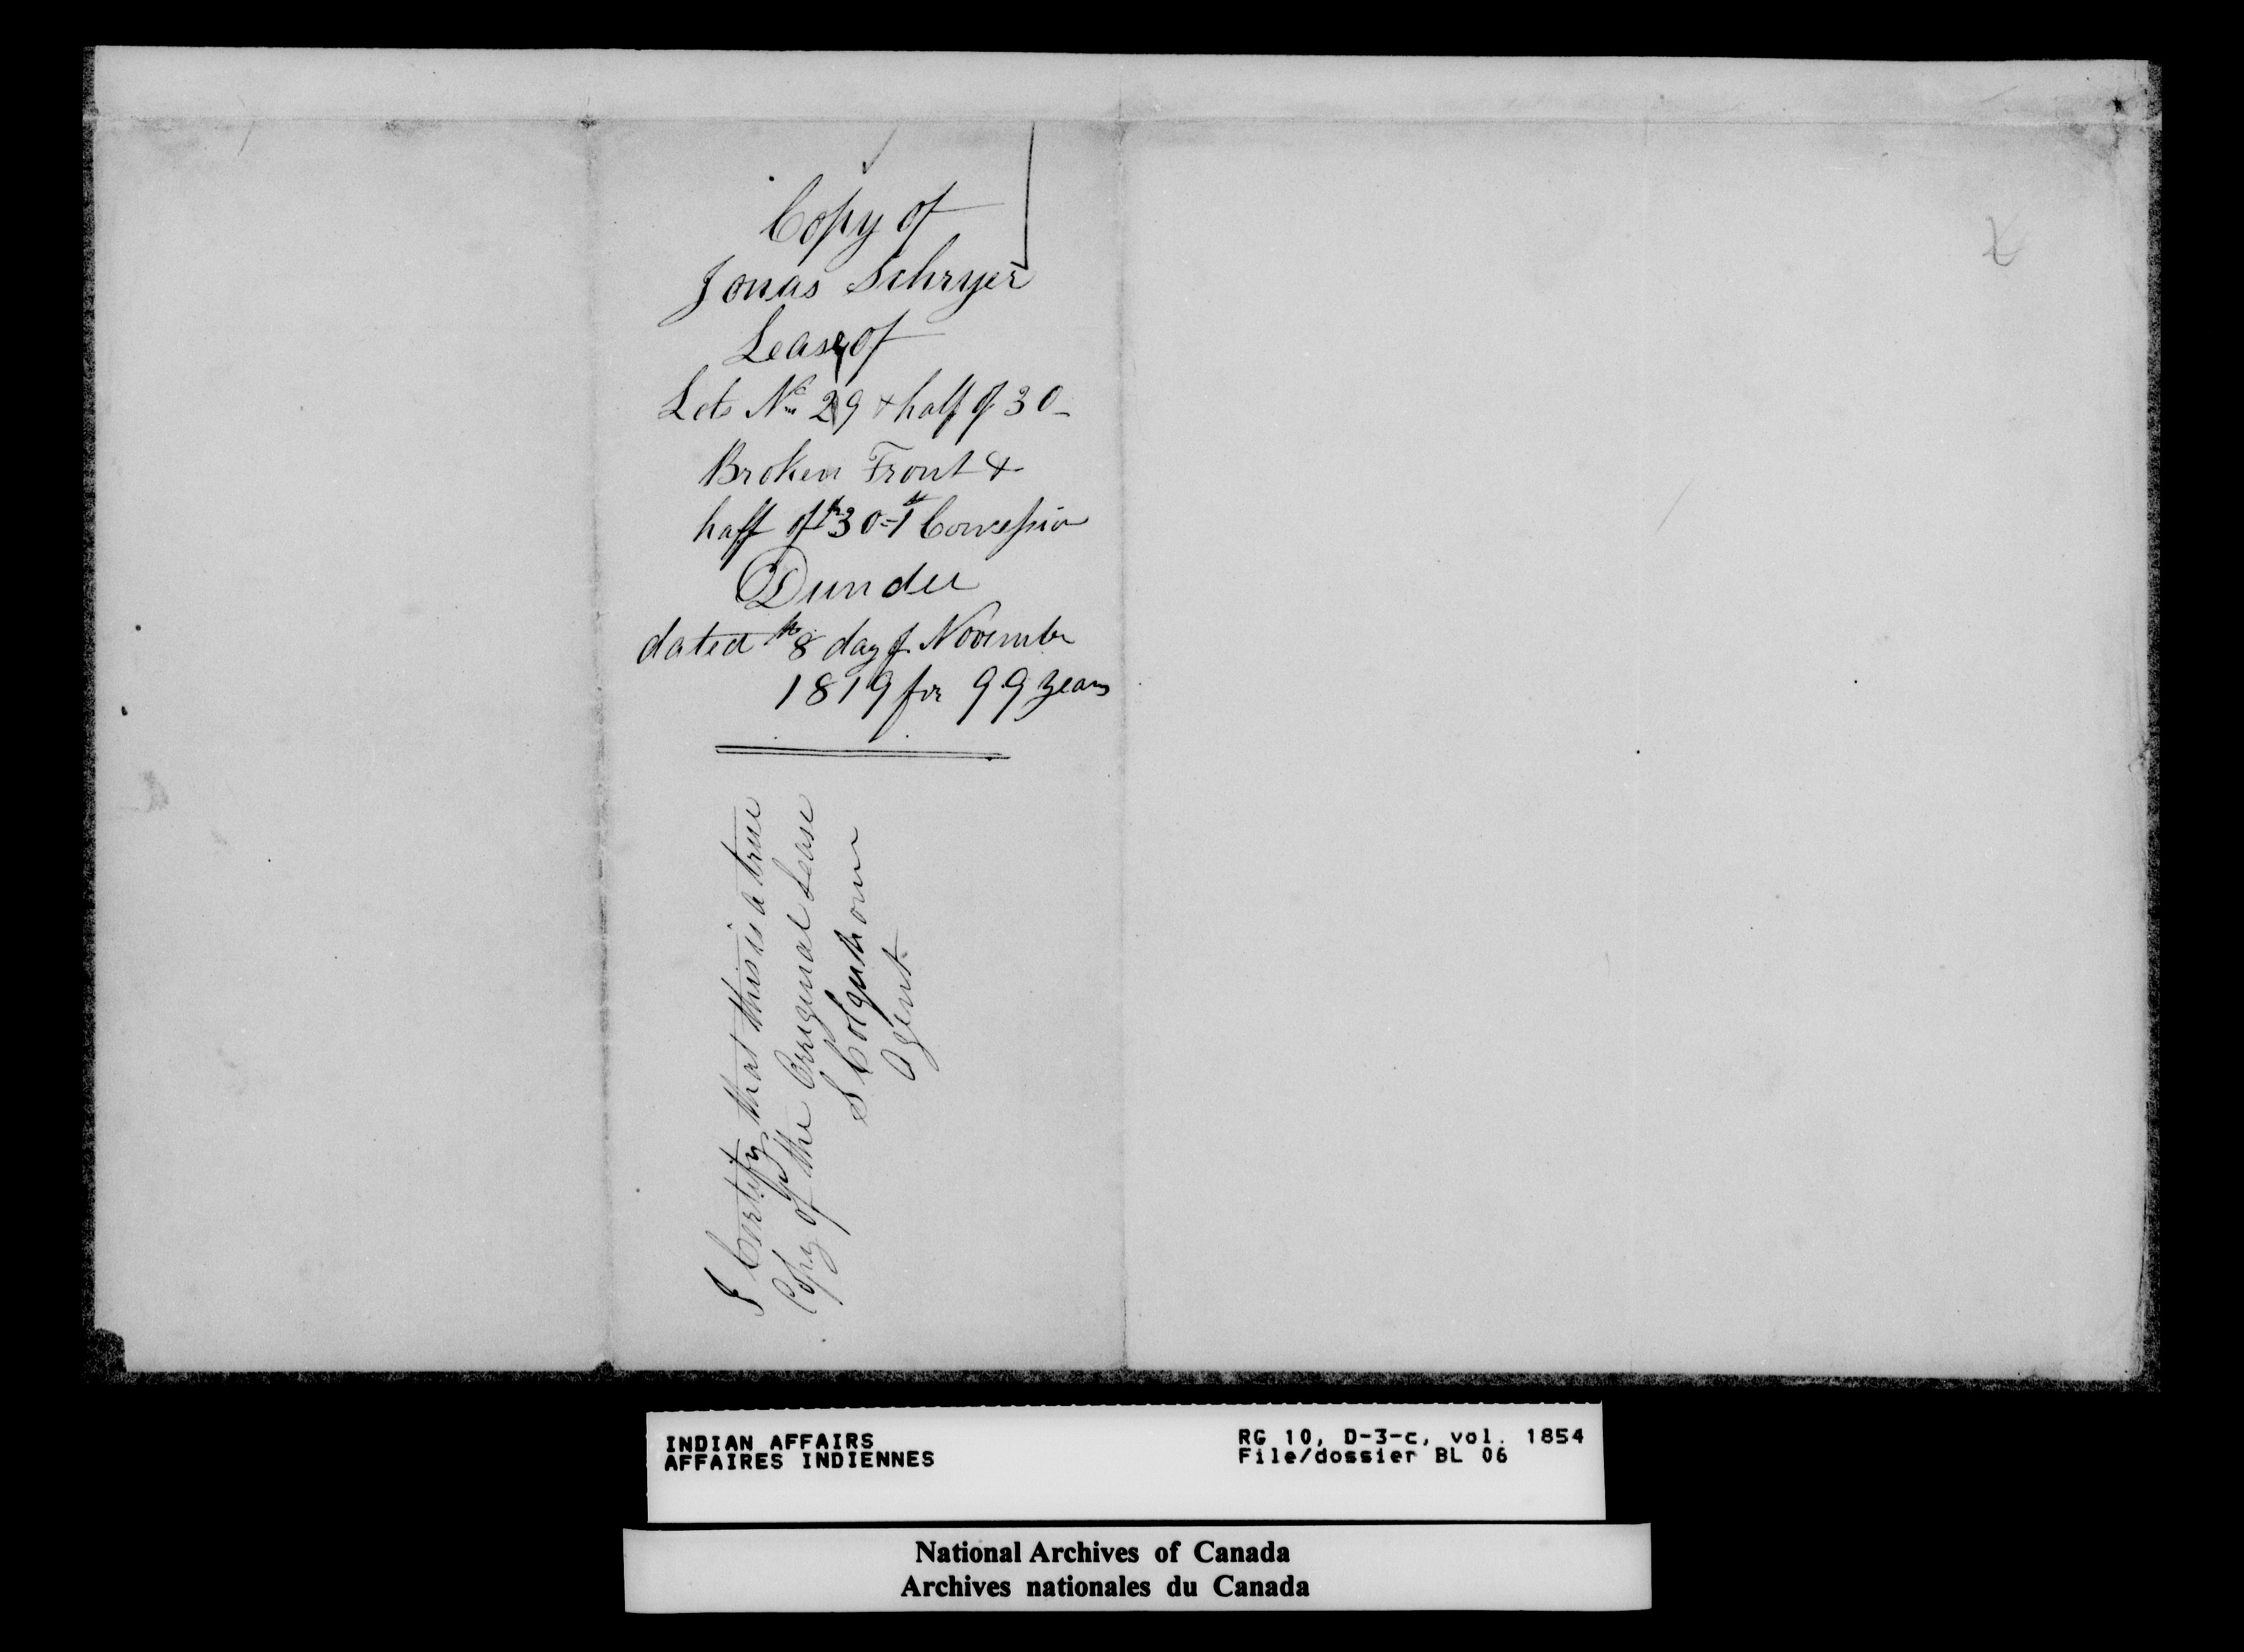 Copy of
Jonas Schryer
Lease of
Lots No 29 & half of 30
Broken Front &
half of 30 - 1st Concession
Dundee
dated the 8 day of November
1819 for 99 years
I Certify that this is a true
Copy of the Orriginal Lease
S Colquhoun
Agent
INDIAN AFFAIRS
AFFAIRES INDIENNES
RG 10, D-3-c, vol. 1854
File/dossier BL 06
National Archives of Canada
Archives nationales du Canada